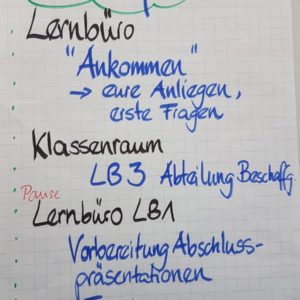 Lernbüro
"Ankommen"
→ eure Anliegen,
erste Fragen
Klassenraum
LB3 Abteilung Beschaffg
Pause
Lernbüro LB1
Vorbereitung Abschluss-
präsentationen